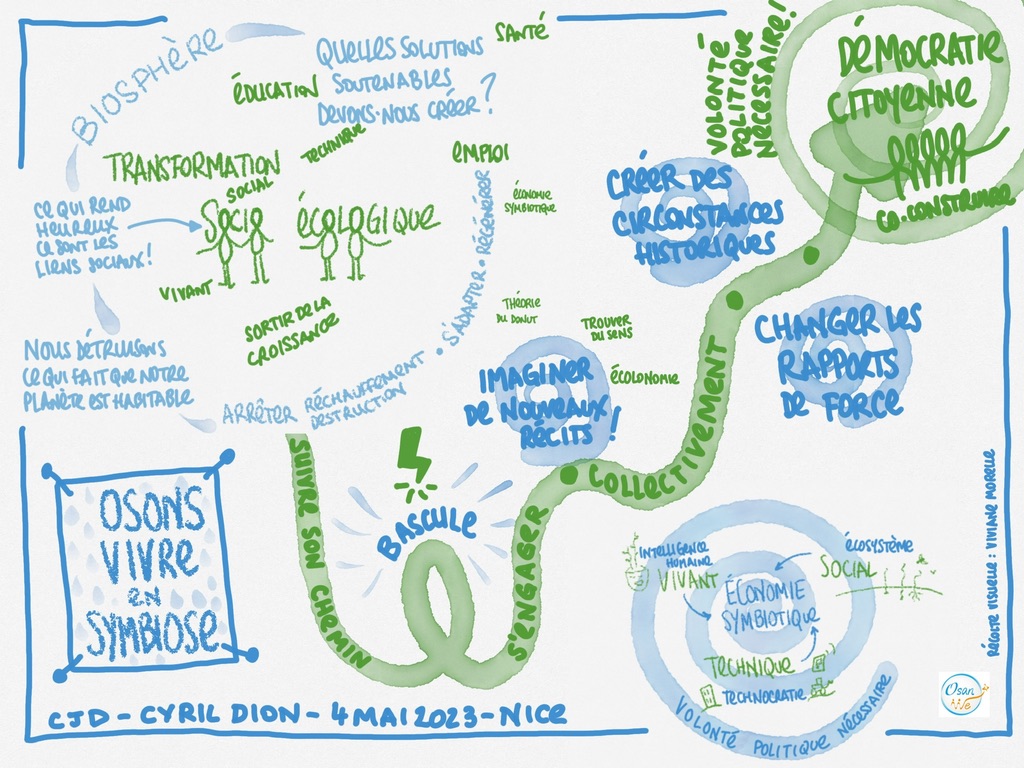 BIOSPHÈRE
QUELLES SOLUTIONS
SOUTENABLES
DEVONS-NOUS CRÉER ?
SANTÉ
ÉDUCATION
TECHNIQUE
EMPLOI
TRANSFORMATION
SOCIAL
SOCIO
ÉCOLOGIQUE
VIVANT
CE QUI REND
HEUREUX
CE SONT LES
LIENS SOCIAUX !
SORTIR DE LA
CROISSANCE
NOUS DÉTRUISONS
CE QUI FAIT QUE NOTRE
PLANÈTE EST HABITABLE
ARRÊTER
RÉCHAUFFEMENT
DESTRUCTION
• S'ADAPTER • RÉGÉNÉRER
ÉCONOMIE
SYMBIOTIQUE
THÉORIE
DU DONUT
TROUVER
DU SENS
ÉCOLONOMIE
IMAGINER
DE NOUVEAUX
RÉCITS !
CRÉER DES
CIRCONSTANCES
HISTORIQUES
CHANGER LES
RAPPORTS
DE FORCE
VOLONTÉ
POLITIQUE
NÉCESSAIRE !
DÉMOCRATIE
CITOYENNE
CO-CONSTRUIRE
SUIVRE SON CHEMIN
BASCULE
S'ENGAGER
COLLECTIVEMENT
OSONS
VIVRE
EN
SYMBIOSE
INTELLIGENCE
HUMAINE
VIVANT
ÉCOSYSTÈME
SOCIAL
ÉCONOMIE
SYMBIOTIQUE
TECHNIQUE
TECHNOCRATIE
VOLONTÉ POLITIQUE NÉCESSAIRE
RÉCOLTE VISUELLE : VIVIANE MORELLE
CJD - CYRIL DION - 4 MAI 2023 - NICE